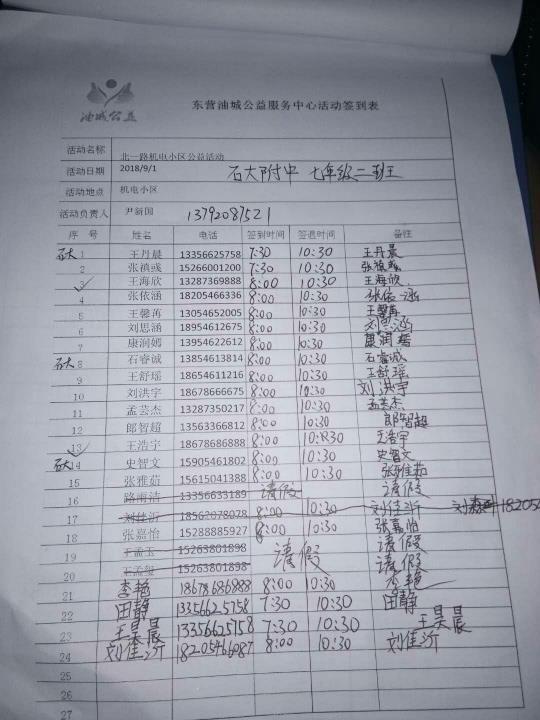 油城公益
东营油城公益服务中心活动签到表
活动名称 北一路机电小区公益活动
活动日期 2018/9/1 石大附中 七年级二班
活动地点 机电小区
活动负责人 尹新国 13792087521
序 号 姓名 电话 签到时间 签退时间 备注
石大 1 王丹晨 13356625758 7:30 10:30 王丹晨
2 张禛彧 15266001200 7:30 10:30 张禛彧
3 王海欣 13287369888 8:00 10:30 王海欣
4 张依涵 18205466336 8:00 10:30 张依涵
5 王馨苒 13054652005 8:00 10:30 王馨苒
6 刘思涵 18954612675 8:00 10:30 刘思涵
7 康润嫣 13954622612 8:00 10:30 康润嫣
石大 8 石睿诚 13854613814 8:00 10:30 石睿诚
9 王舒瑶 18654611216 8:00 10:30 王舒瑶
10 刘洪宇 18678666675 8:00 10:30 刘洪宇
11 孟芸杰 13287350217 8:00 10:30 孟芸杰
12 郎智超 13563366812 8:00 10:30 郎智超
13 王浩宇 18678686888 8:00 10:30 王浩宇
石大 14 史智文 15905461802 8:00 10:30 史智文
15 张雅茹 15615041388 8:00 10:30 张雅茹
16 路雨洁 13356633189 请假 请假
17 刘佳沂 18562078078 8:00 10:30 刘佳沂
18 张嘉怡 15288885927 8:00 10:30 张嘉怡
19 王孟玉 15263801898 请假 请假
20 王孟玺 15263801898 请假
21 李艳 18678686888 8:00 10:30 李艳
22 田静 13356625758 7:30 10:30 田静
23 王昊晨 13356625758 7:30 10:30 王昊晨
24 刘佳沂 18205466087 8:00 10:30 刘佳沂
25
26
27